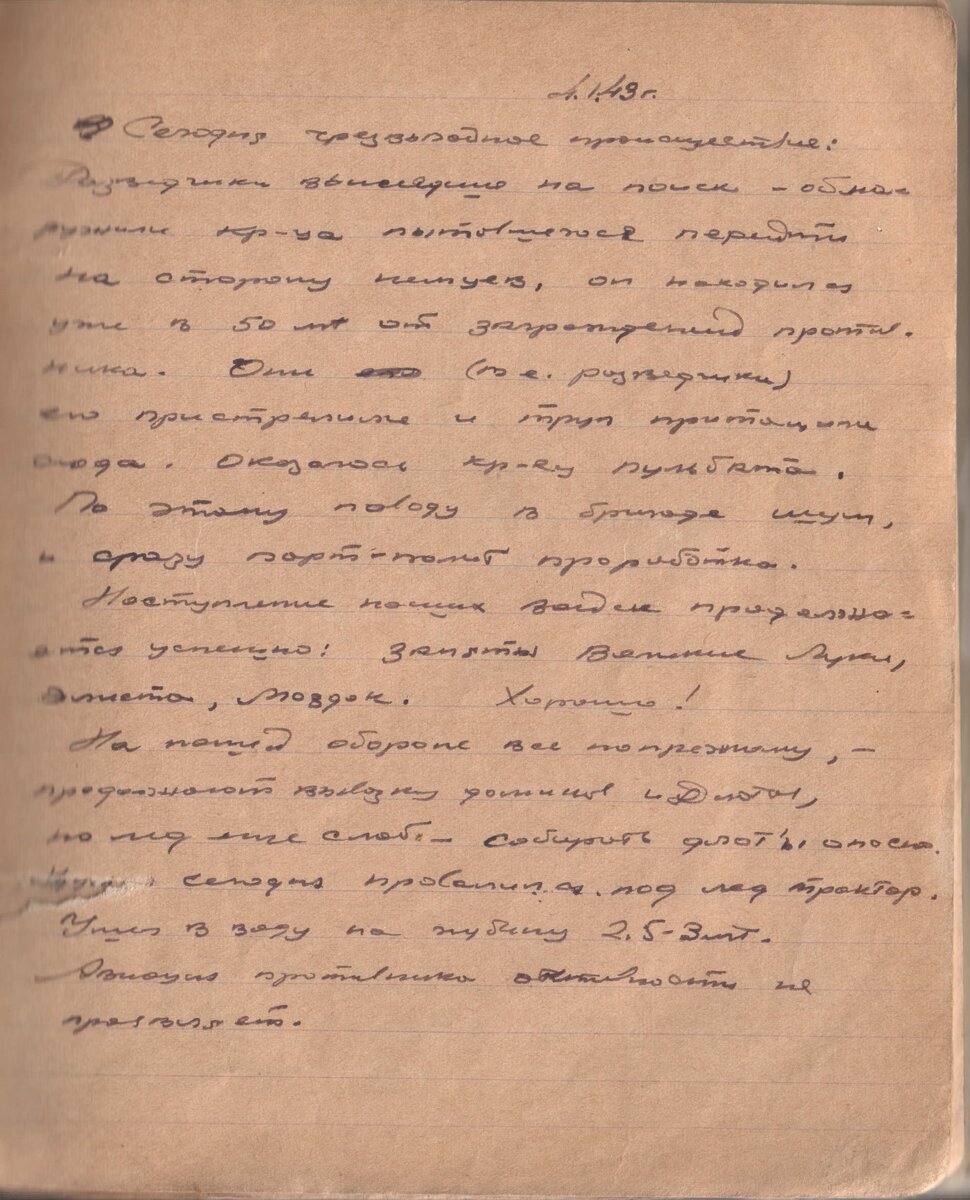 4.1.43 г.
Сегодня чрезвычайное происшествие:
Разведчики вышедшие на поиск – обна=
ружили кр-ца пытовшегося перейти
на сторону немцев, он находился
уже в 50 мт от заграждений против-
ника. Они (т.е. разведчики)
его пристрелили и труп притащили
сюда. Оказалось кр-ец пульбата.
По этому поводу в бригаде шум,
и сразу парт-полит проработка.
Наступление наших войск продолжа=
ется успешно: заняты Великие Луки,
Элиста, Моздок. Хорошо!
На нашей обороне все попрежнему, –
продолжают вывозку домиков и Дзоты,
но лед еще слаб – собирать дзоты опасно.
сегодня провалился под лед трактор.
Ушел в воду на глубину 2.5-3 мт.
Авиация противника активности не
проявляет.